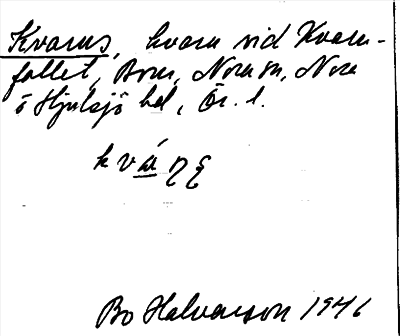 Kvarns, kvarn vid Kvarn-
fallet, Born, Nora sn, Nora
o Hjulsjö hd, Ör. l.
Bo Halvarson 1946